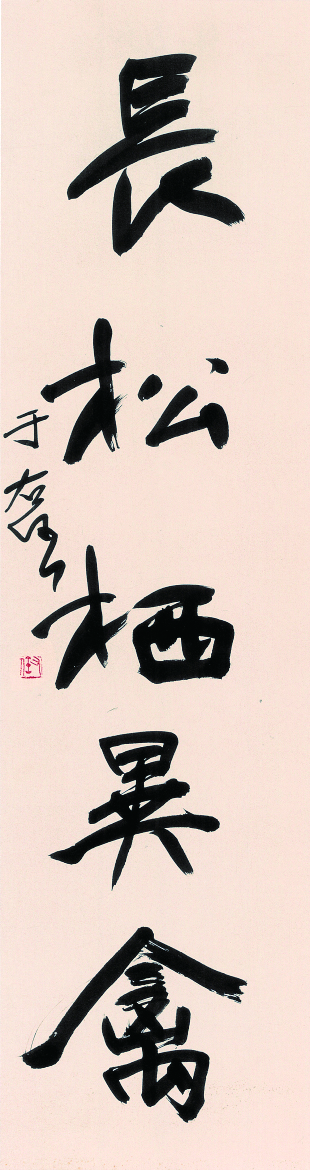 長松栖異禽
于右任